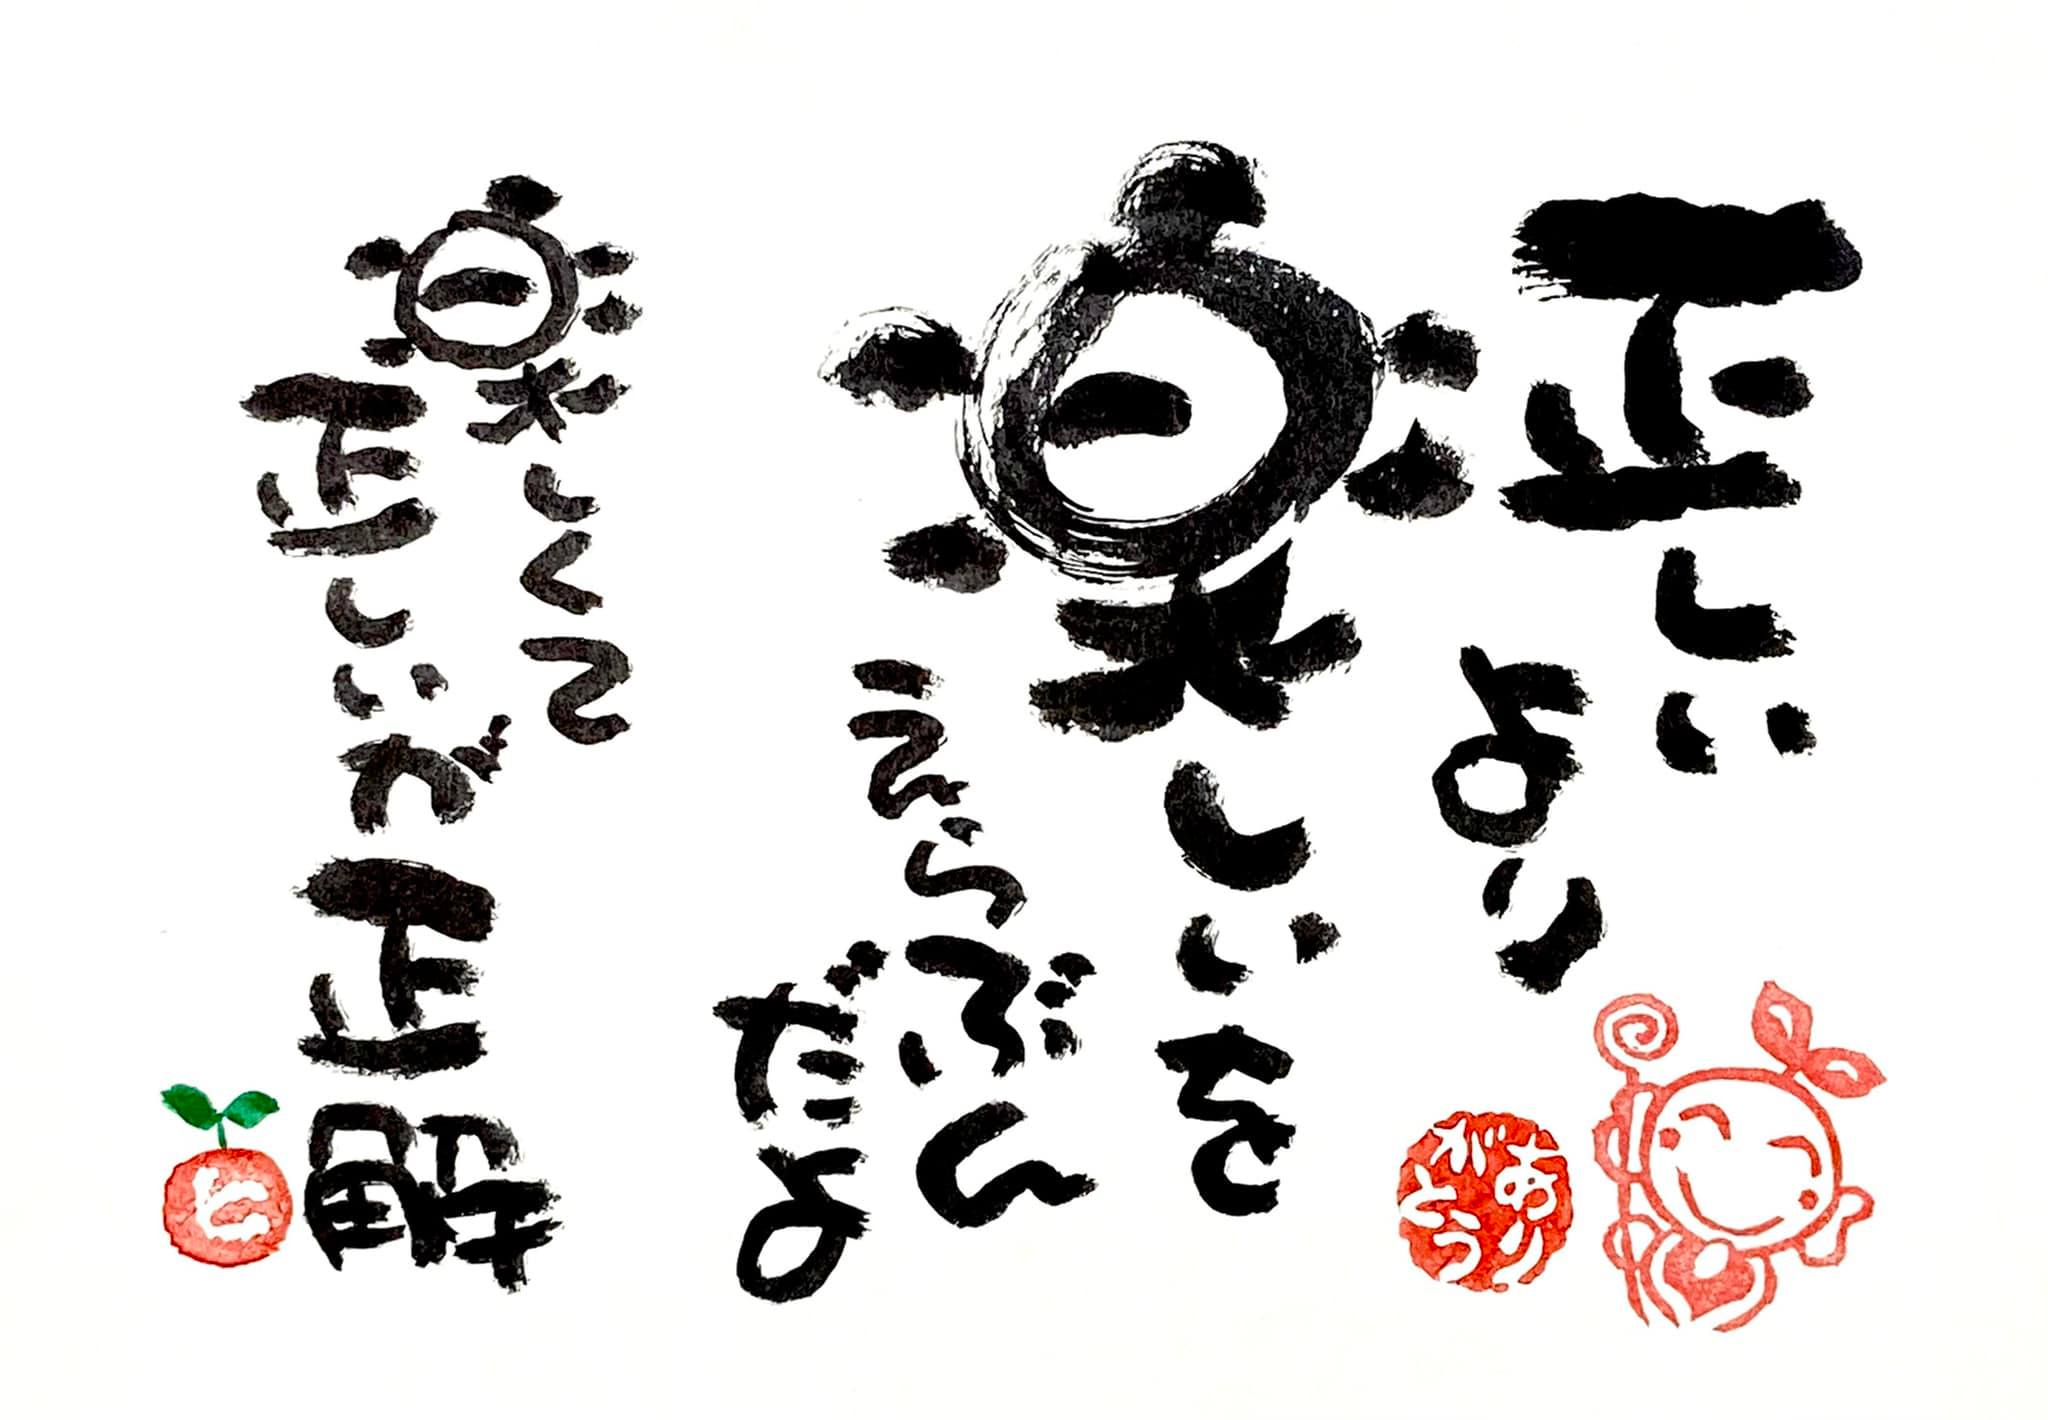 正しい
より
楽しいを
えらぶん
だよ
楽しくて
正しいが正解
ありがとう
と